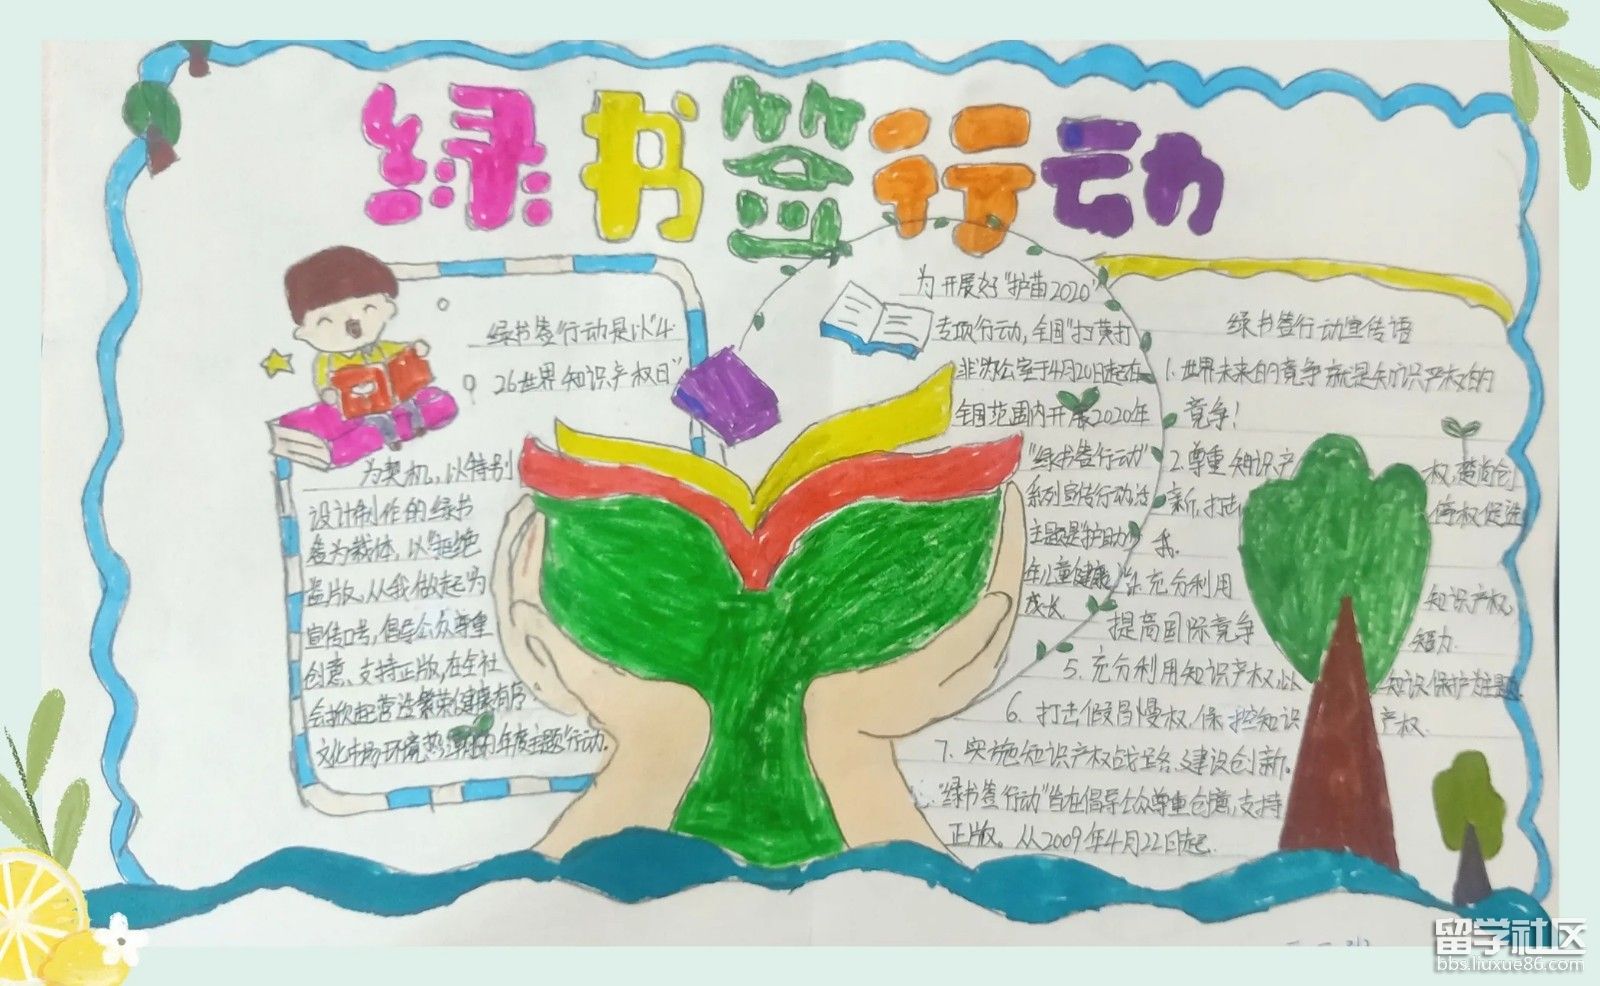 绿书签行动
绿书签行动是以"4·
26世界知识产权日"
为契机,以特别
设计制作的绿书
签为载体,以"拒绝
盗版,从我做起"为
宣传口号,倡导公众尊重
创意、支持正版,在全社
会掀起营造繁荣健康有序
文化市场环境热潮的年度主题行动。
为开展好"护苗2020"
专项行动,全国"扫黄打
非"办公室于4月20日起在
全国范围内开展2020年
"绿书签行动"
系列宣传行动活
主题是"护助少
年儿童健康
成长
绿书行动宣传语
1.世界未来的竞争就是知识产权的
竞争!
2.尊重知识产 权,
新,打击 促进
我.
4.充分利用 知识产权,
提高国际竞争 智力.
5.充分利用知识产权以 知识保护主题
6.打击假冒慢权,保 知识 产权.
7.实施知识产权战略,建设创新。
"绿书签行动"旨在倡导公众尊重创意,支持
正版。从2009年4月22日起.
留学社区
bbs.liuxue86.com